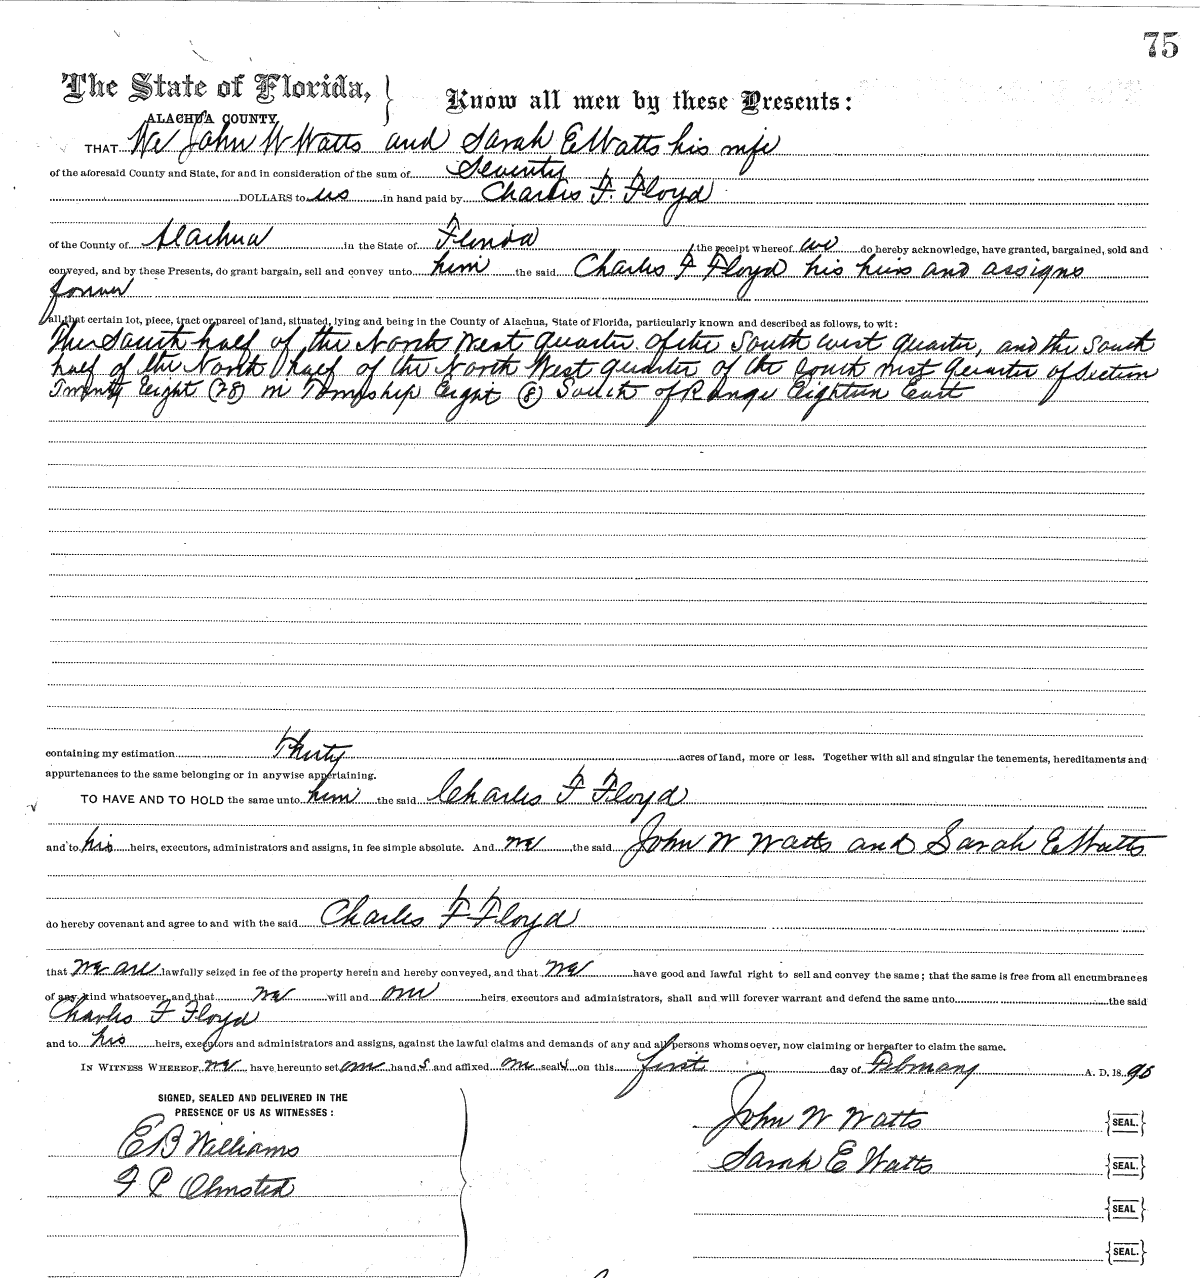 75
The State of Florida, } Know all men by these Presents:
ALACHUA COUNTY
THAT We John W Watts and Sarah E Watts his wife
of the aforesaid County and State, for and in consideration of the sum of Seventy
DOLLARS to us in hand paid by Charles F. Floyd
of the County of Alachua in the State of Florida, the receipt whereof we do hereby acknowledge, have granted, bargained, sold and
conveyed, and by these Presents, do grant bargain, sell and convey unto him the said Charles F Floyd his heirs and assigns
forever
all that certain lot, piece, tract or parcel of land, situated, lying and being in the County of Alachua, State of Florida, particularly known and described as follows, to wit:
The South half of the North West quarter of the South west quarter, and the South
half of the North half of the North West quarter of the South west Quarter of Section
Twenty Eight (28) in Township Eight (8) South of Range Eighteen East
containing my estimation Thirty acres of land, more or less. Together with all and singular the tenements, hereditaments and
appurtenances to the same belonging or in anywise appertaining.
TO HAVE AND TO HOLD the same unto him the said Charles F Floyd
and to his heirs, executors, administrators and assigns, in fee simple absolute. And we the said John W Watts and Sarah E Watts
do hereby covenant and agree to and with the said Charles F Floyd
that we are lawfully seized in fee of the property herein and hereby conveyed, and that we have good and lawful right to sell and convey the same; that the same is free from all encumbrances
of any kind whatsoever, and that we will and our heirs, executors and administrators, shall and will forever warrant and defend the same unto the said
Charles F Floyd
and to his heirs, executors and administrators and assigns, against the lawful claims and demands of any and all persons whomsoever, now claiming or hereafter to claim the same.
IN WITNESS WHEREOF we have hereunto set our hand s and affixed our seal s on this first day of February A. D. 18 96
SIGNED, SEALED AND DELIVERED IN THE
PRESENCE OF US AS WITNESSES:
E B Williams
F P Olmsted
John W Watts {SEAL.}
Sarah E Watts {SEAL.}
{SEAL}
{SEAL.}